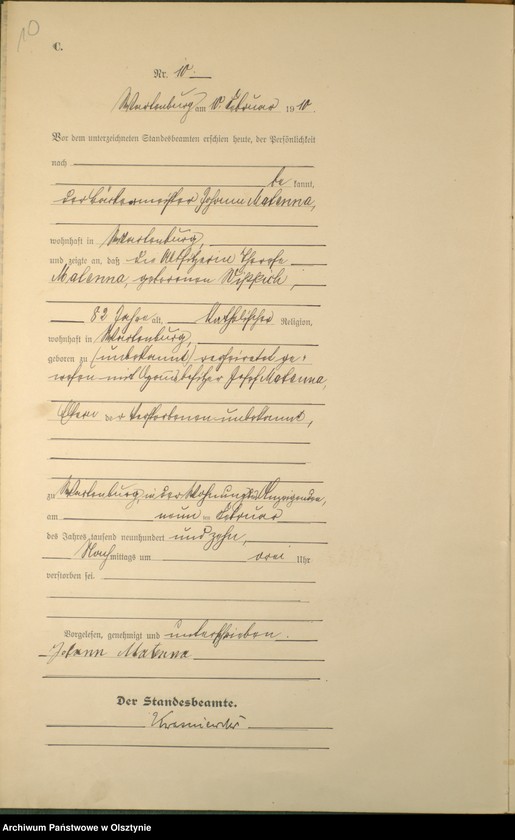 10
C.
Nr. 10.
Wartenburg am 10. Februar 1910.
Vor dem unterzeichneten Standesbeamten erschien heute, der Persönlichkeit
nach
be kannt,
der Bäckermeister Johann Malenna,
wohnhaft in Wartenburg,
und zeigte an, daß die Altsitzerin Therese
Malenna, geborenen
82 Jahre alt, katholischer Religion,
wohnhaft in Wartenburg,
geboren zu (unbekannt) verheiratet ge-
wesen mit Josef Malenna,
Eltern der Verstorbenen unbekannt,
zu Wartenburg, in der Wohnung des Anzeigenden,
am neun ten Februar
des Jahres tausend neunhundert und zehn,
Nach mittags um drei Uhr
verstorben sei.
Vorgelesen, genehmigt und unterschrieben.
Johann Malenna
Der Standesbeamte.
Archiwum Państwowe w Olsztynie